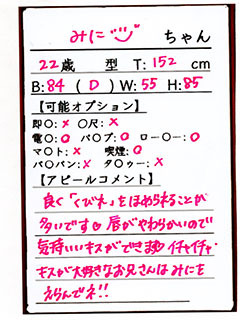 みに ちゃん
22歳 型 T:152 cm
B:84 (D) W:55 H:85
【可能オプション】
即○:× ○尺:×
電○:○ バ○ブ:○ ロ○ー○ー:○
マ○ト:× 喫煙:○
パ○パン:× タ○ゥー:×
【アピールコメント】
良く「くびれ」をほめられることが
多いです♥唇がやわらかいので
気持いいキスができます♥イチャイチャ
キスが大好きなお兄さんはみにを
えらんでネ!!